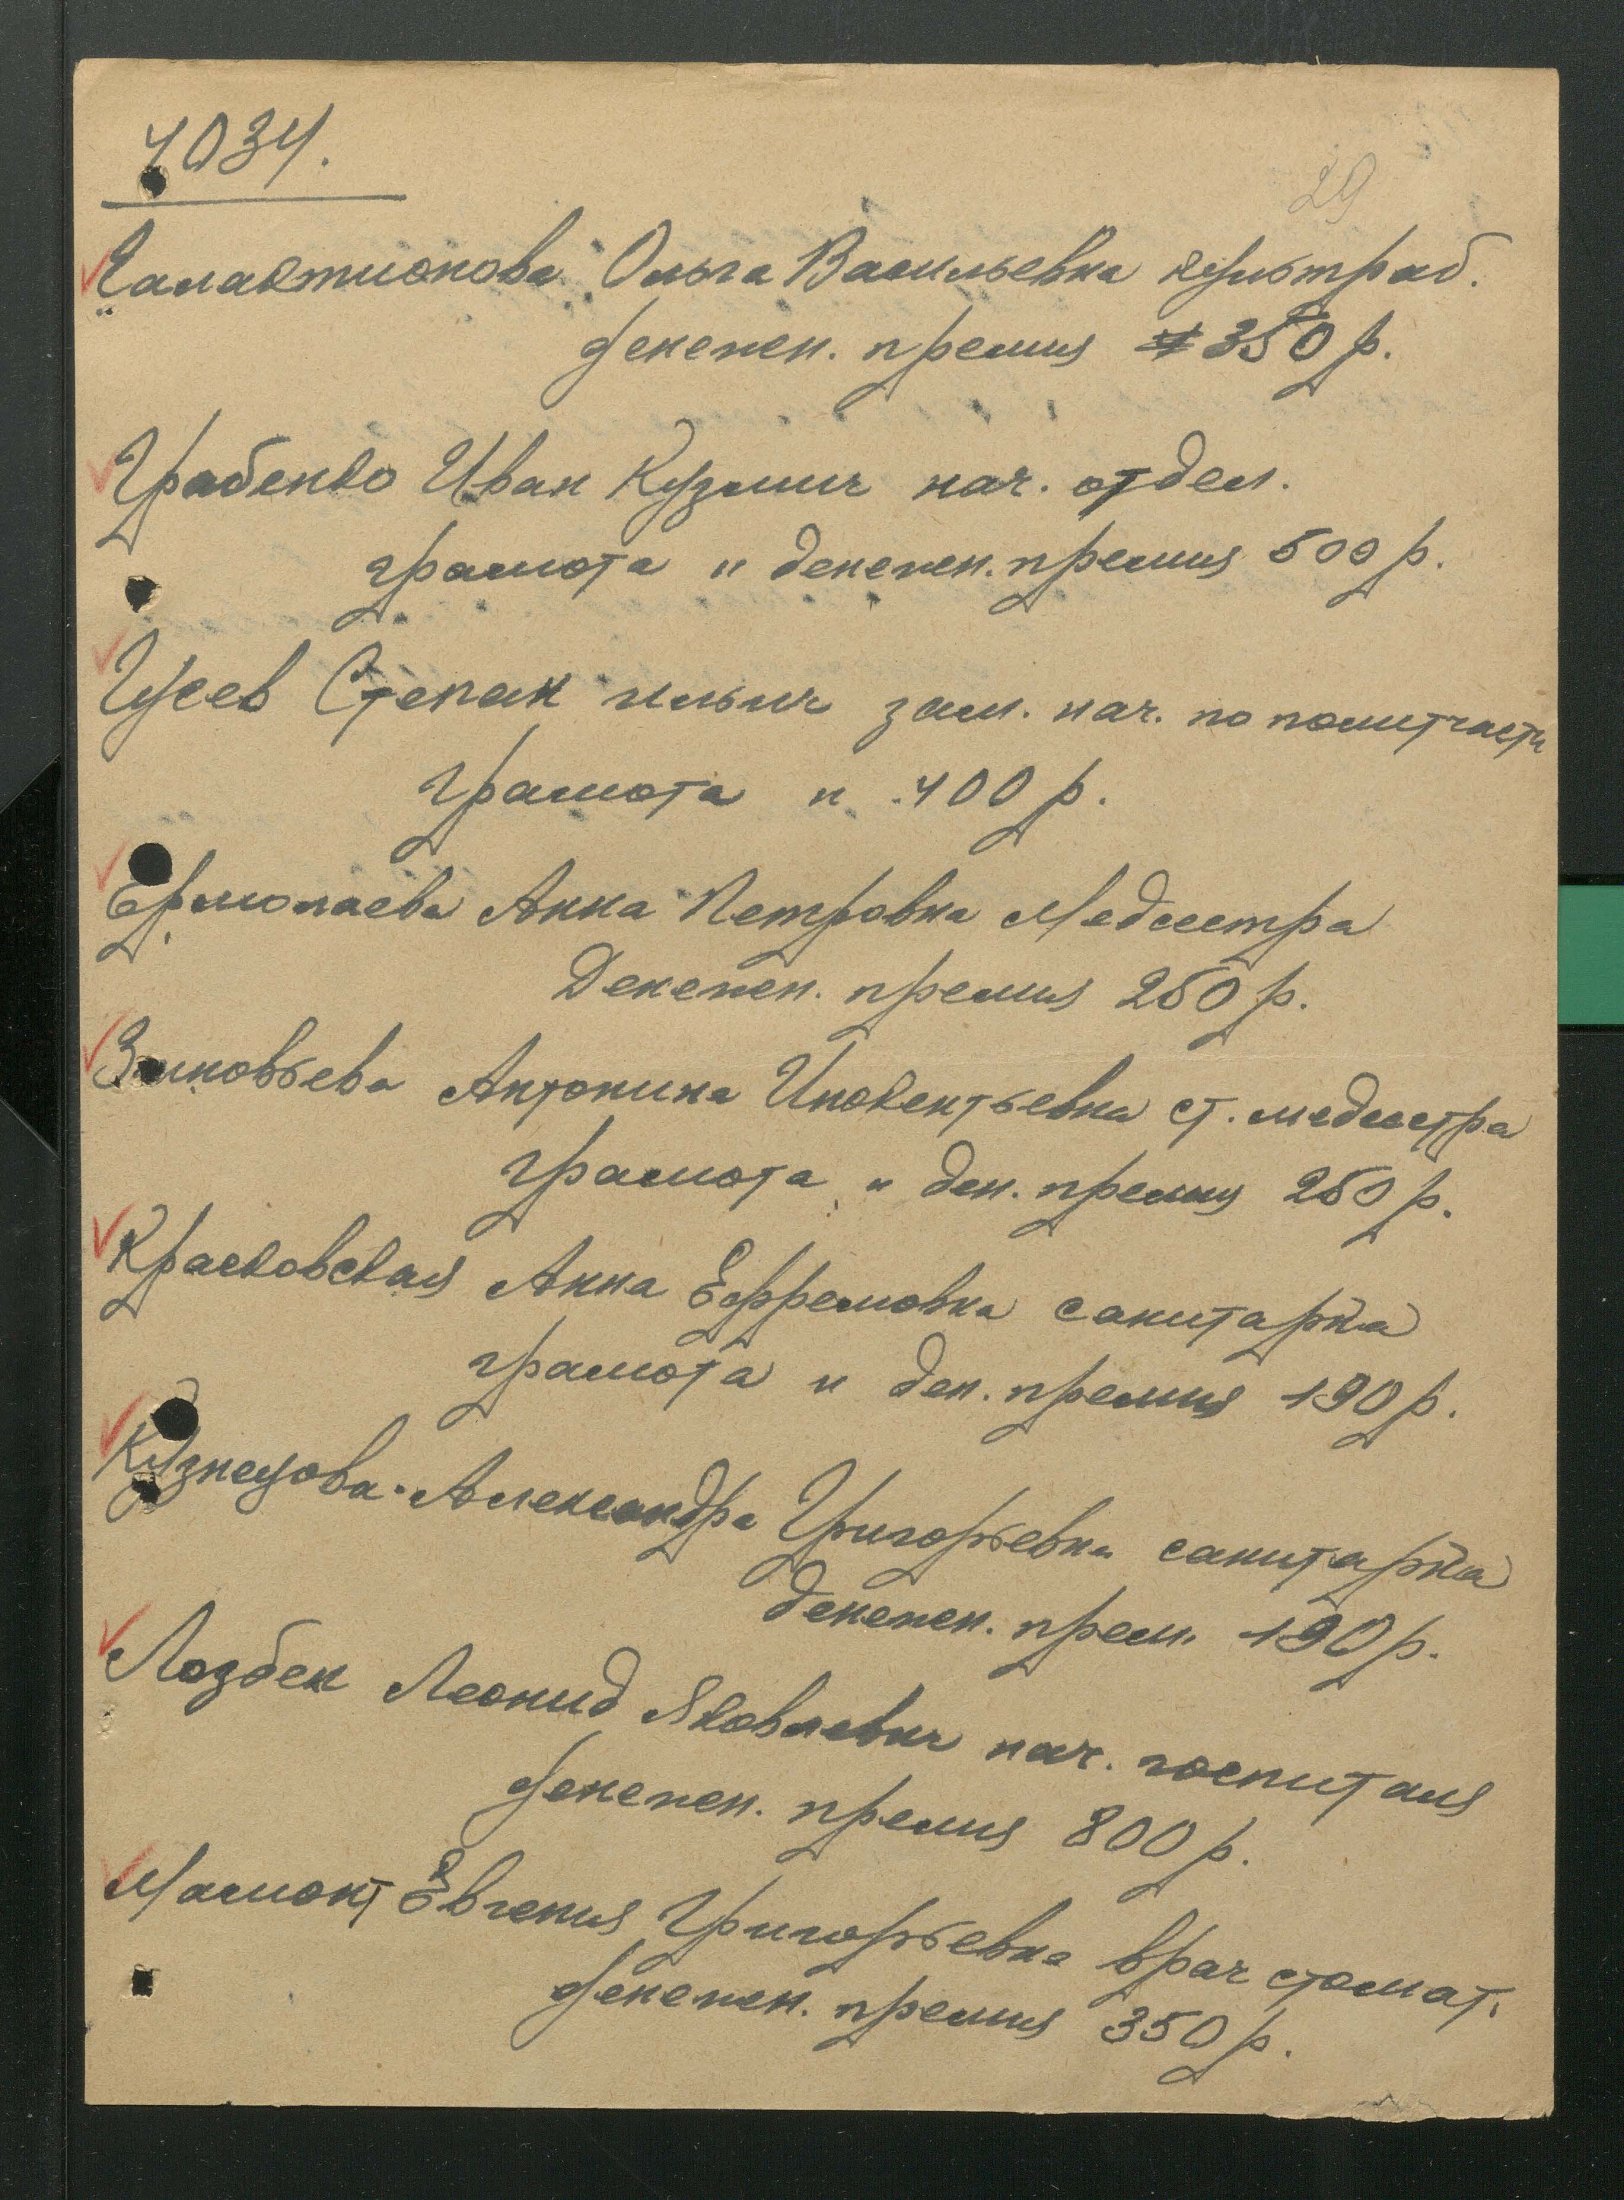 4034.
29
Галактионова Ольга Васильевна культраб.
денежн. премия 350 р.
Грабенко Иван Кузмич нач. отдел.
грамота и денежн. премия 500 р.
Гусев Степан ильич зам. нач. по политчасти
грамота и 400 р.
Ермолаева Анна Петровна Медсестра
Денежн. премия 250 р.
Зиновьева Антонина Инокентьевна ст. медсестра
грамота и ден. премия 250 р.
Красковская Анна Ефремовна санитарка
грамота и ден. премия 190 р.
Кузнецова Александра Григорьевна санитарка
денежн. прем. 190 р.
Лозбен Леонид Яковлевич нач. госпиталя
денежн. премия 800 р.
Мамонт Евгения Григорьевна врач стомат.
денежн. премия 350 р.